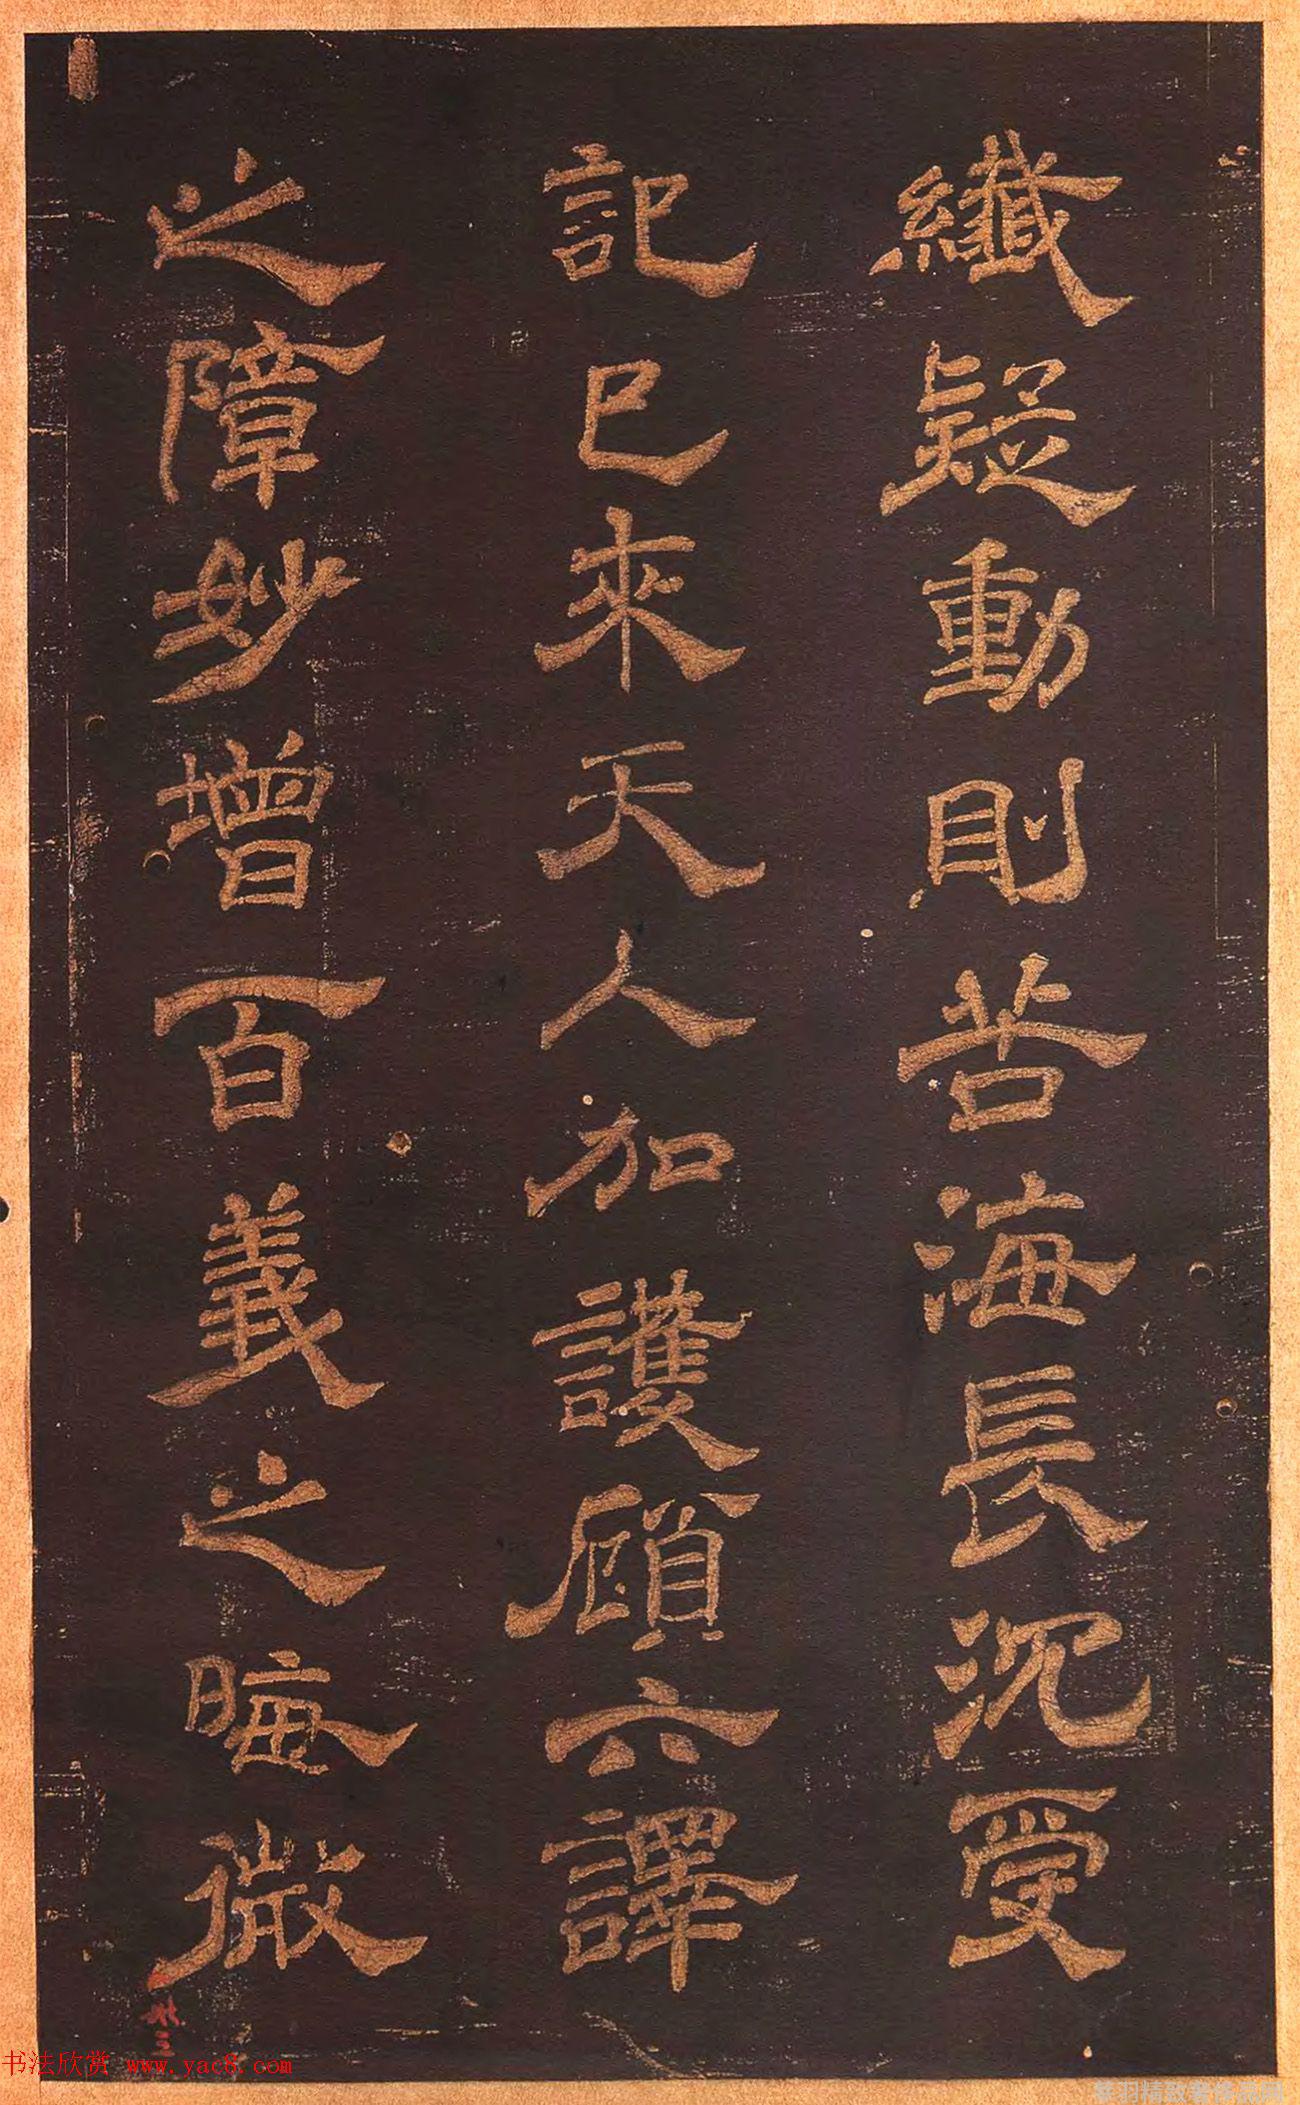 纖疑動則苦海長沉受
記已來天人加護顧六譯
之障妙增百義之晦徵
书法欣赏 www.yac8.com